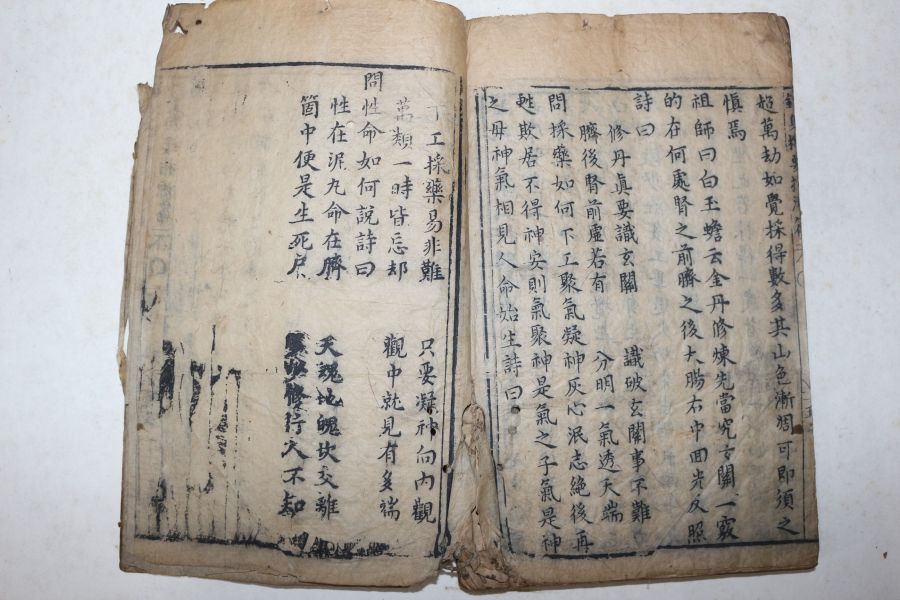 超萬劫如覺採得數多其山色漸凋可即須之
愼焉
祖師曰白玉蟾云金丹修煉先當究玄關一竅
的在何處腎之前臍之後大腸右中回光反照
詩曰
修丹眞要識玄關 識破玄關事不難
臍後腎前虛若有 分明一氣透天端
問採藥如何下工聚氣凝神灰心泯志絶後再
甦欺居不得神安則氣聚神是氣之子氣是神
之母神氣相見人命始生詩曰
下工採藥易非難 只要凝神向內觀
萬類一時皆忘却 觀中就見有多端
問性命如何說詩曰
性在泥九命在臍 天魂地魄坎交離
箇中便是生死戶 修行人不知